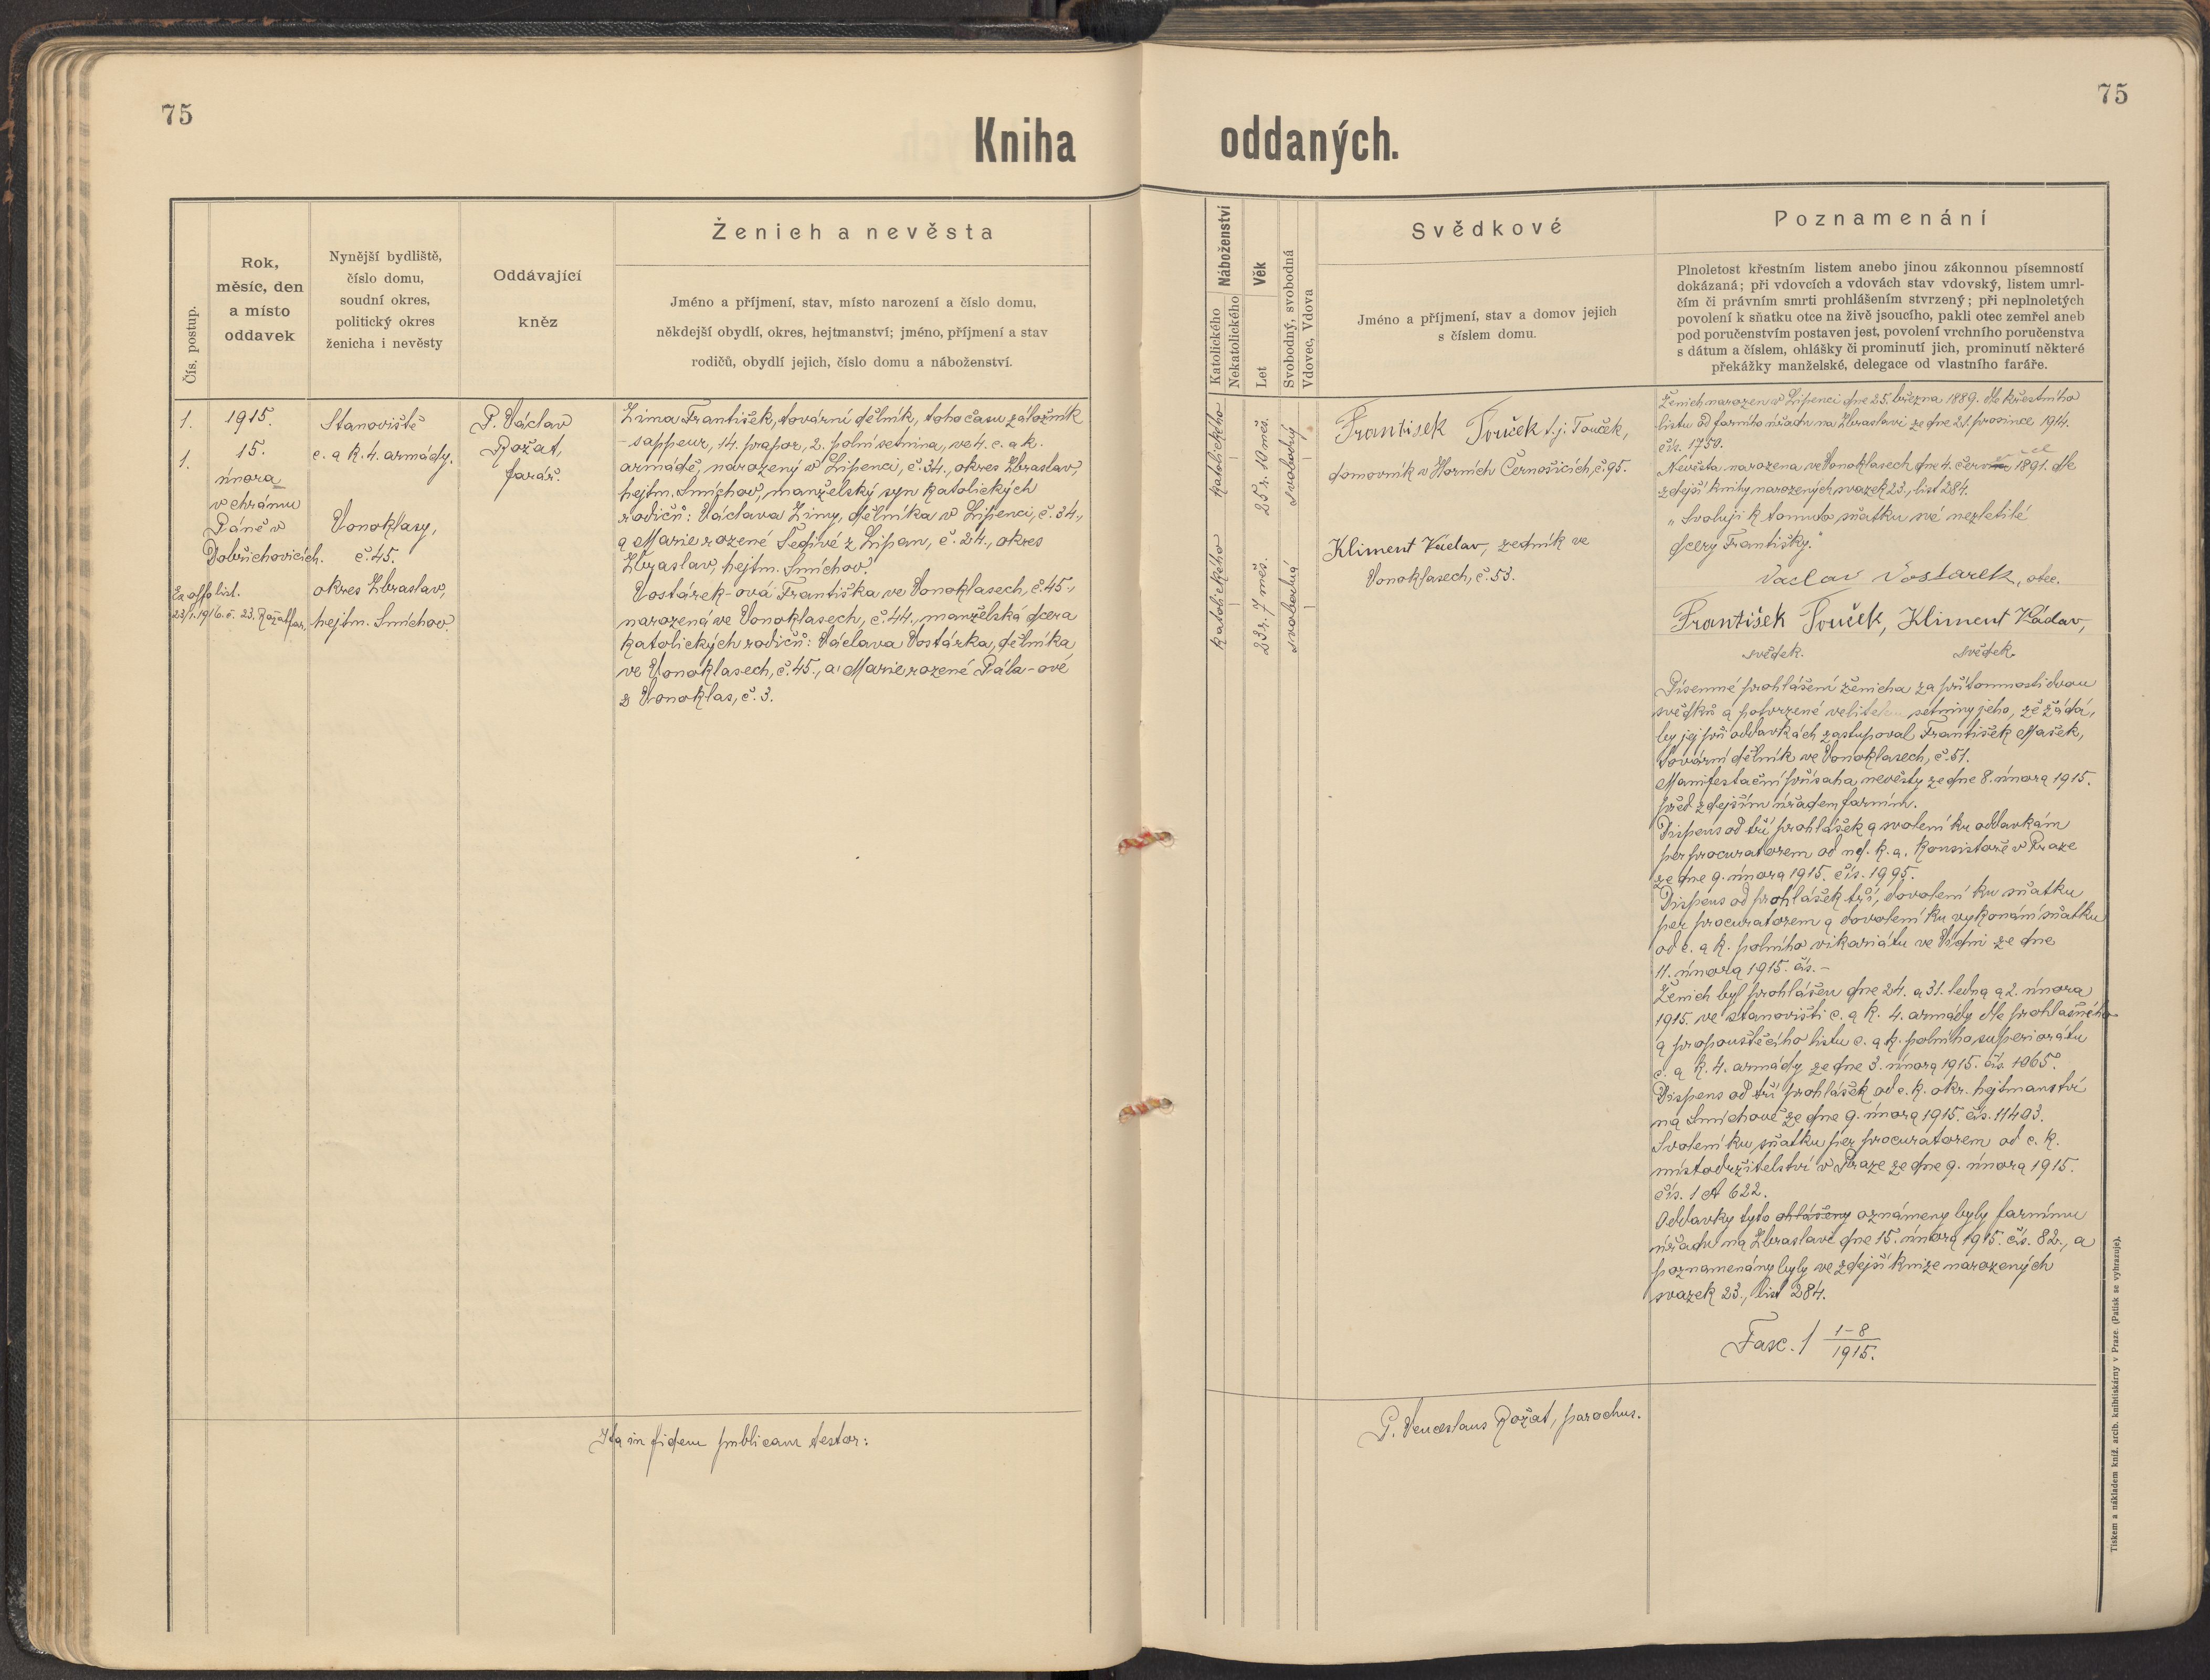 75
75
Kniha oddaných.
Čís. postup.
Rok,
měsíc, den
a místo
oddavek
Nynější bydliště,
číslo domu,
soudní okres,
politický okres
ženicha i nevěsty
Oddávající
kněz
Ženich a nevěsta
Jméno a příjmení, stav, místo narození a číslo domu,
někdejší obydlí, okres, hejtmanství; jméno, příjmení a stav
rodičů, obydlí jejich, číslo domu a náboženství.
1.
1.
1915.
15.
února
v chrámu
Páně v
Dobřichovicích.
Ex offo list.
23/1. 1916. č. 23. Rožat far.
Stanoviště
c. a k. 4. armády.
Vonoklasy,
č. 45.
okres Zbraslav,
hejtm. Smíchov.
P. Václav
Rožat,
farář.
Zima František, tovární dělník, toho času záložník
- sappeur, 14. prapor, 2. polní setnina, ve 4. c. a k.
armádě, narozený v Lipenci, č. 34., okres Zbraslav,
hejtm. Smíchov, manželský syn katolických
rodičů: Václava Zimy, dělníka v Lipenci, č. 34.,
a Marie rozené Šedivé z Lipan, č. 24., okres
Zbraslav, hejtm. Smíchov.
Vostárek-ová Františka ve Vonoklasech, č. 45.,
narozená ve Vonoklasech, č. 44., manželská dcera
katolických rodičů: Václava Vostárka, dělníka
ve Vonoklasech, č. 45., a Marie rozené Pála-ové
z Vonoklas, č. 3.
Ita in fidem publicam testor:
Náboženství
Katolického
Nekatolického
Věk
Let
Svobodný, svobodná
Vdovec, Vdova
Svědkové
Jméno a příjmení, stav a domov jejich
s číslem domu.
Poznamenání
Plnoletost křestním listem anebo jinou zákonnou písemností
dokázaná; při vdovcích a vdovách stav vdovský, listem umrl-
čím či právním smrti prohlášením stvrzený; při neplnoletých
povolení k sňatku otce na živě jsoucího, pakli otec zemřel aneb
pod poručenstvím postaven jest, povolení vrchního poručenstva
s dátum a číslem, ohlášky či prominutí jich, prominutí některé
překážky manželské, delegace od vlastního faráře.
katolického
25 r. 10 měs.
svobodný
katolického
23 r. 7 měs.
svobodná
František Touček t. j. Touček,
domovník v Horních Černošicích, č. 95.
Kliment Václav, zedník ve
Vonoklasech, č. 53.
Ženich narozen v Lipenci dne 25. března 1889. dle křestního
listu od farního úřadu na Zbraslavi ze dne 21. prosince 1914.
čís. 1750.
Nevěsta narozena ve Vonoklasech dne 4. června 1891. dle
zdejší knihy narozených svazek 23., list 284.
"Svoluji k tomuto sňatku své nezletilé
dcery Františky."
Vaclav Vostarek, otec.
František Touček, Kliment Václav,
svědek. svědek.
Písemné prohlášení ženicha za přítomnosti dvou
svědků a potvrzené velitelem setniny jeho, že žádá,
by jej při oddavkách zastupoval František Mašek,
tovární dělník ve Vonoklasech, č. 51.
Manifestační přísaha nevěsty ze dne 8. února 1915.
před zdejším úřadem farním.
Dispens od tří prohlášek a svolení ku oddavkám
per procuratorem od nejd. k. a. konsistoře v Praze
ze dne 9. února 1915. čís. 1995.
Dispens od prohlášek tří, dovolení ku sňatku
per procuratorem a dovolení ku vykonání sňatku
od c. a k. polního vikariátu ve Vídni ze dne
11. února 1915. čís. -
Ženich byl prohlášen dne 24. a 31. ledna a 2. února
1915. ve stanovišti c. a k. 4. armády dle prohlašného
a propouštěcího listu c. a k. polního superiorátu
c. a k. 4. armády ze dne 3. února 1915. čís. 1065.
Dispens od tří prohlášek od c. k. okr. hejtmanství
na Smíchově ze dne 9. února 1915. čís. 11403.
Svolení ku sňatku per procuratorem od c. k.
místodržitelství v Praze ze dne 9. února 1915.
čís. 1 A 622.
Oddavky tyto ohlášeny oznámeny byly farnímu
úřadu na Zbraslavi dne 15. února 1915. čís. 82., a
poznamenány byly ve zdejší knize narozených
svazek 23., list 284.
Fasc. 1 1-8/1915.
P. Venceslaus Rožat, parochus.
Tiskem a nákladem kníž. arcib. knihtiskárny v Praze. (Patisk se vyhrazuje).